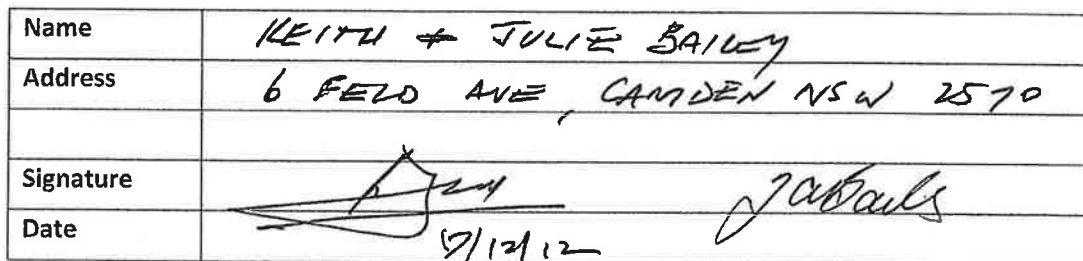 Name KEITH & JULIE BAILEY
Address 6 FELD AVE, CAMDEN NSW 2570
Signature
Date 17/12/12